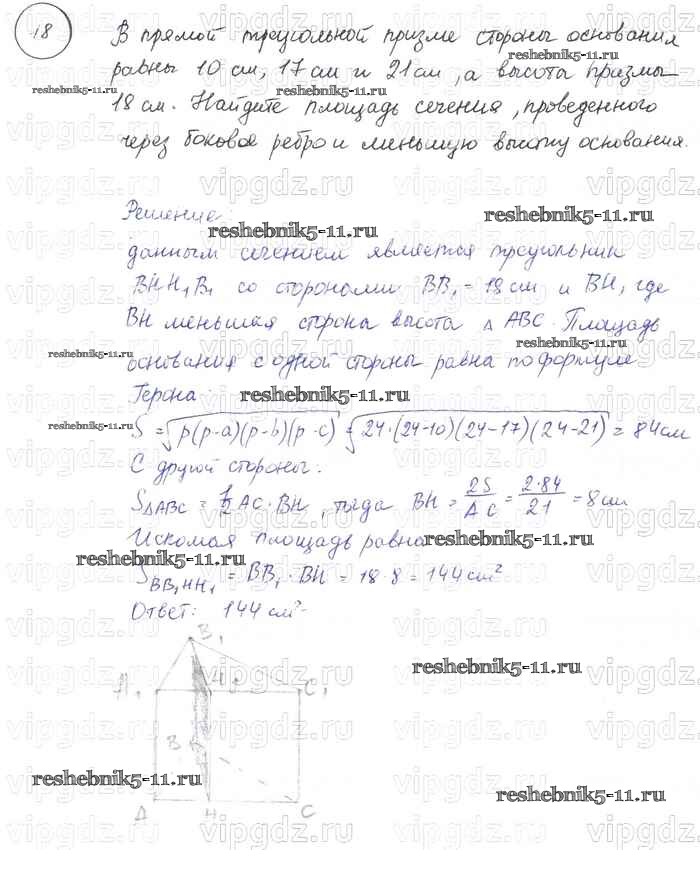 18
В прямой треугольной призме стороны основания
равны 10 см, 17 см и 21 см, а высота призмы
18 см. Найдите площадь сечения, проведенного
через боковое ребро и меньшую высоту основания.
Решение:
данным сечением является треугольник
BHH₁B₁ со сторонами BB₁ = 18 см и BH, где
BH меньшая стороны высота △ABC. Площадь
основания с одной стороны равна по формуле
Герона:
S = √p(p-a)(p-b)(p-c) = √24·(24-10)(24-17)(24-21) = 84 см
С другой стороны:
S△ABC = ½ AC · BH, тогда BH = 2S/AC = 2·84/21 = 8 см
Искомая площадь равна
S BB₁HH₁ = BB₁ · BH = 18·8 = 144 см²
Ответ: 144 см²
B₁
A₁ H₁ C₁
B
A H C
reshebnik5-11.ru
vipgdz.ru